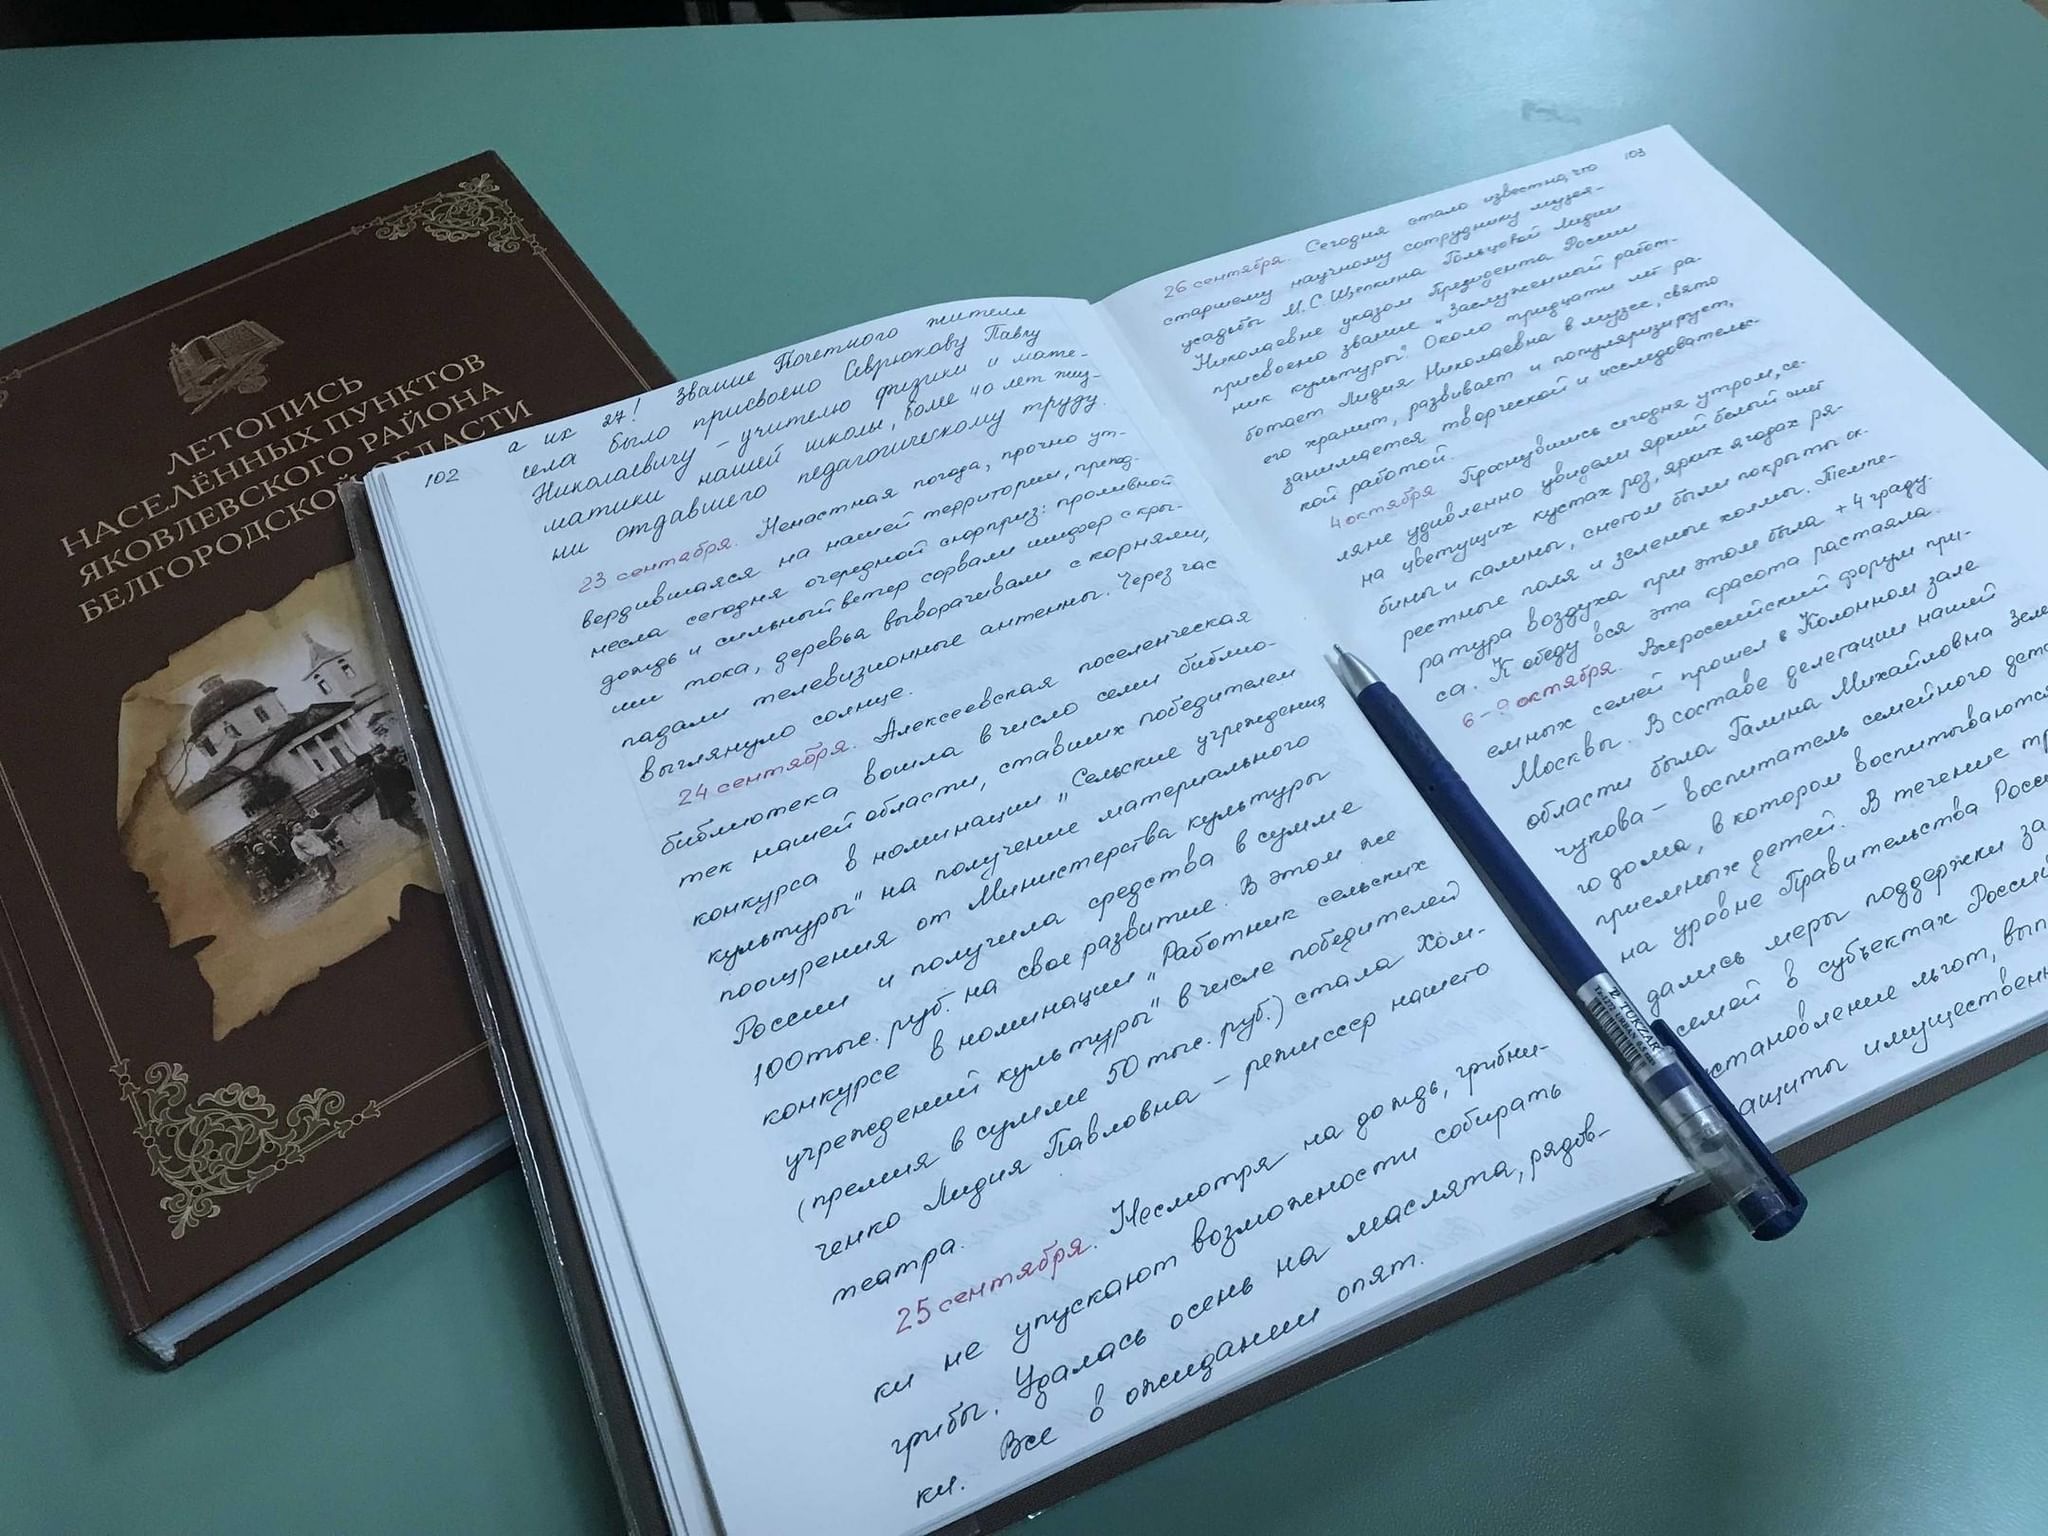 ЛЕТОПИСЬ
НАСЕЛЁННЫХ ПУНКТОВ
ЯКОВЛЕВСКОГО РАЙОНА
БЕЛГОРОДСКОЙ ОБЛАСТИ
102
а их 27! Звание Почетного жителя
села было присвоено Севрюкову Павлу
Николаевичу - учителю физики и мате-
матики нашей школы, более 40 лет жиз-
ни отдавшего педагогическому труду.
23 сентября. Ненастная погода, прочно ут-
вердившаяся на нашей территории, препод-
несла сегодня очередной сюрприз: проливной
дождь и сильный ветер сорвали шифер с кры-
ши тока, деревья выворачивали с корнями,
падали телевизионные антенны. Через час
выглянуло солнце.
24 сентября. Алексеевская поселенческая
библиотека вошла в число семи библио-
тек нашей области, ставших победителем
конкурса в номинации „Сельские учреждения
культуры" на получение материального
поощрения от Министерства культуры
России и получила средства в сумме
100 тыс. руб. на свое развитие. В этом же
конкурсе в номинации „Работник сельских
учреждений культуры" в числе победителей
(премия в сумме 50 тыс. руб.) стала Хом-
ченко Лидия Павловна - режиссер нашего
театра.
25 сентября. Несмотря на дождь, грибни-
ки не упускают возможности собирать
грибы. Удалась осень на маслята, рядов-
ки. Все в ожидании опят.
103
26 сентября. Сегодня стало известно, что
старшему научному сотруднику музея-
усадьбы М.С. Щепкина Гольцовой Лидии
Николаевне указом Президента России
присвоено звание „Заслуженный работ-
ник культуры". Около тридцати лет ра-
ботает Лидия Николаевна в музее, свято
его хранит, развивает и популяризирует,
занимается творческой и исследовательс-
кой работой.
4 октября. Проснувшись сегодня утром, се-
ляне удивленно увидели яркий белый снег
на цветущих кустах роз, ярких ягодах ря-
бины и калины, снегом были покрыты ок-
рестные поля и зеленые холмы. Темпе-
ратура воздуха при этом была +4 граду-
са. К обеду вся эта красота растаяла.
6-9 октября. Всероссийский форум при-
емных семей прошел в Колонном зале
Москвы. В составе делегации нашей
области была Галина Михайловна
чукова - воспитатель семейного
го дома, в котором воспитываются
приемных детей. В течение
на уровне Правительства
дались меры поддержки
семей в субъектах
установление льгот,
защиты
TUKZAR